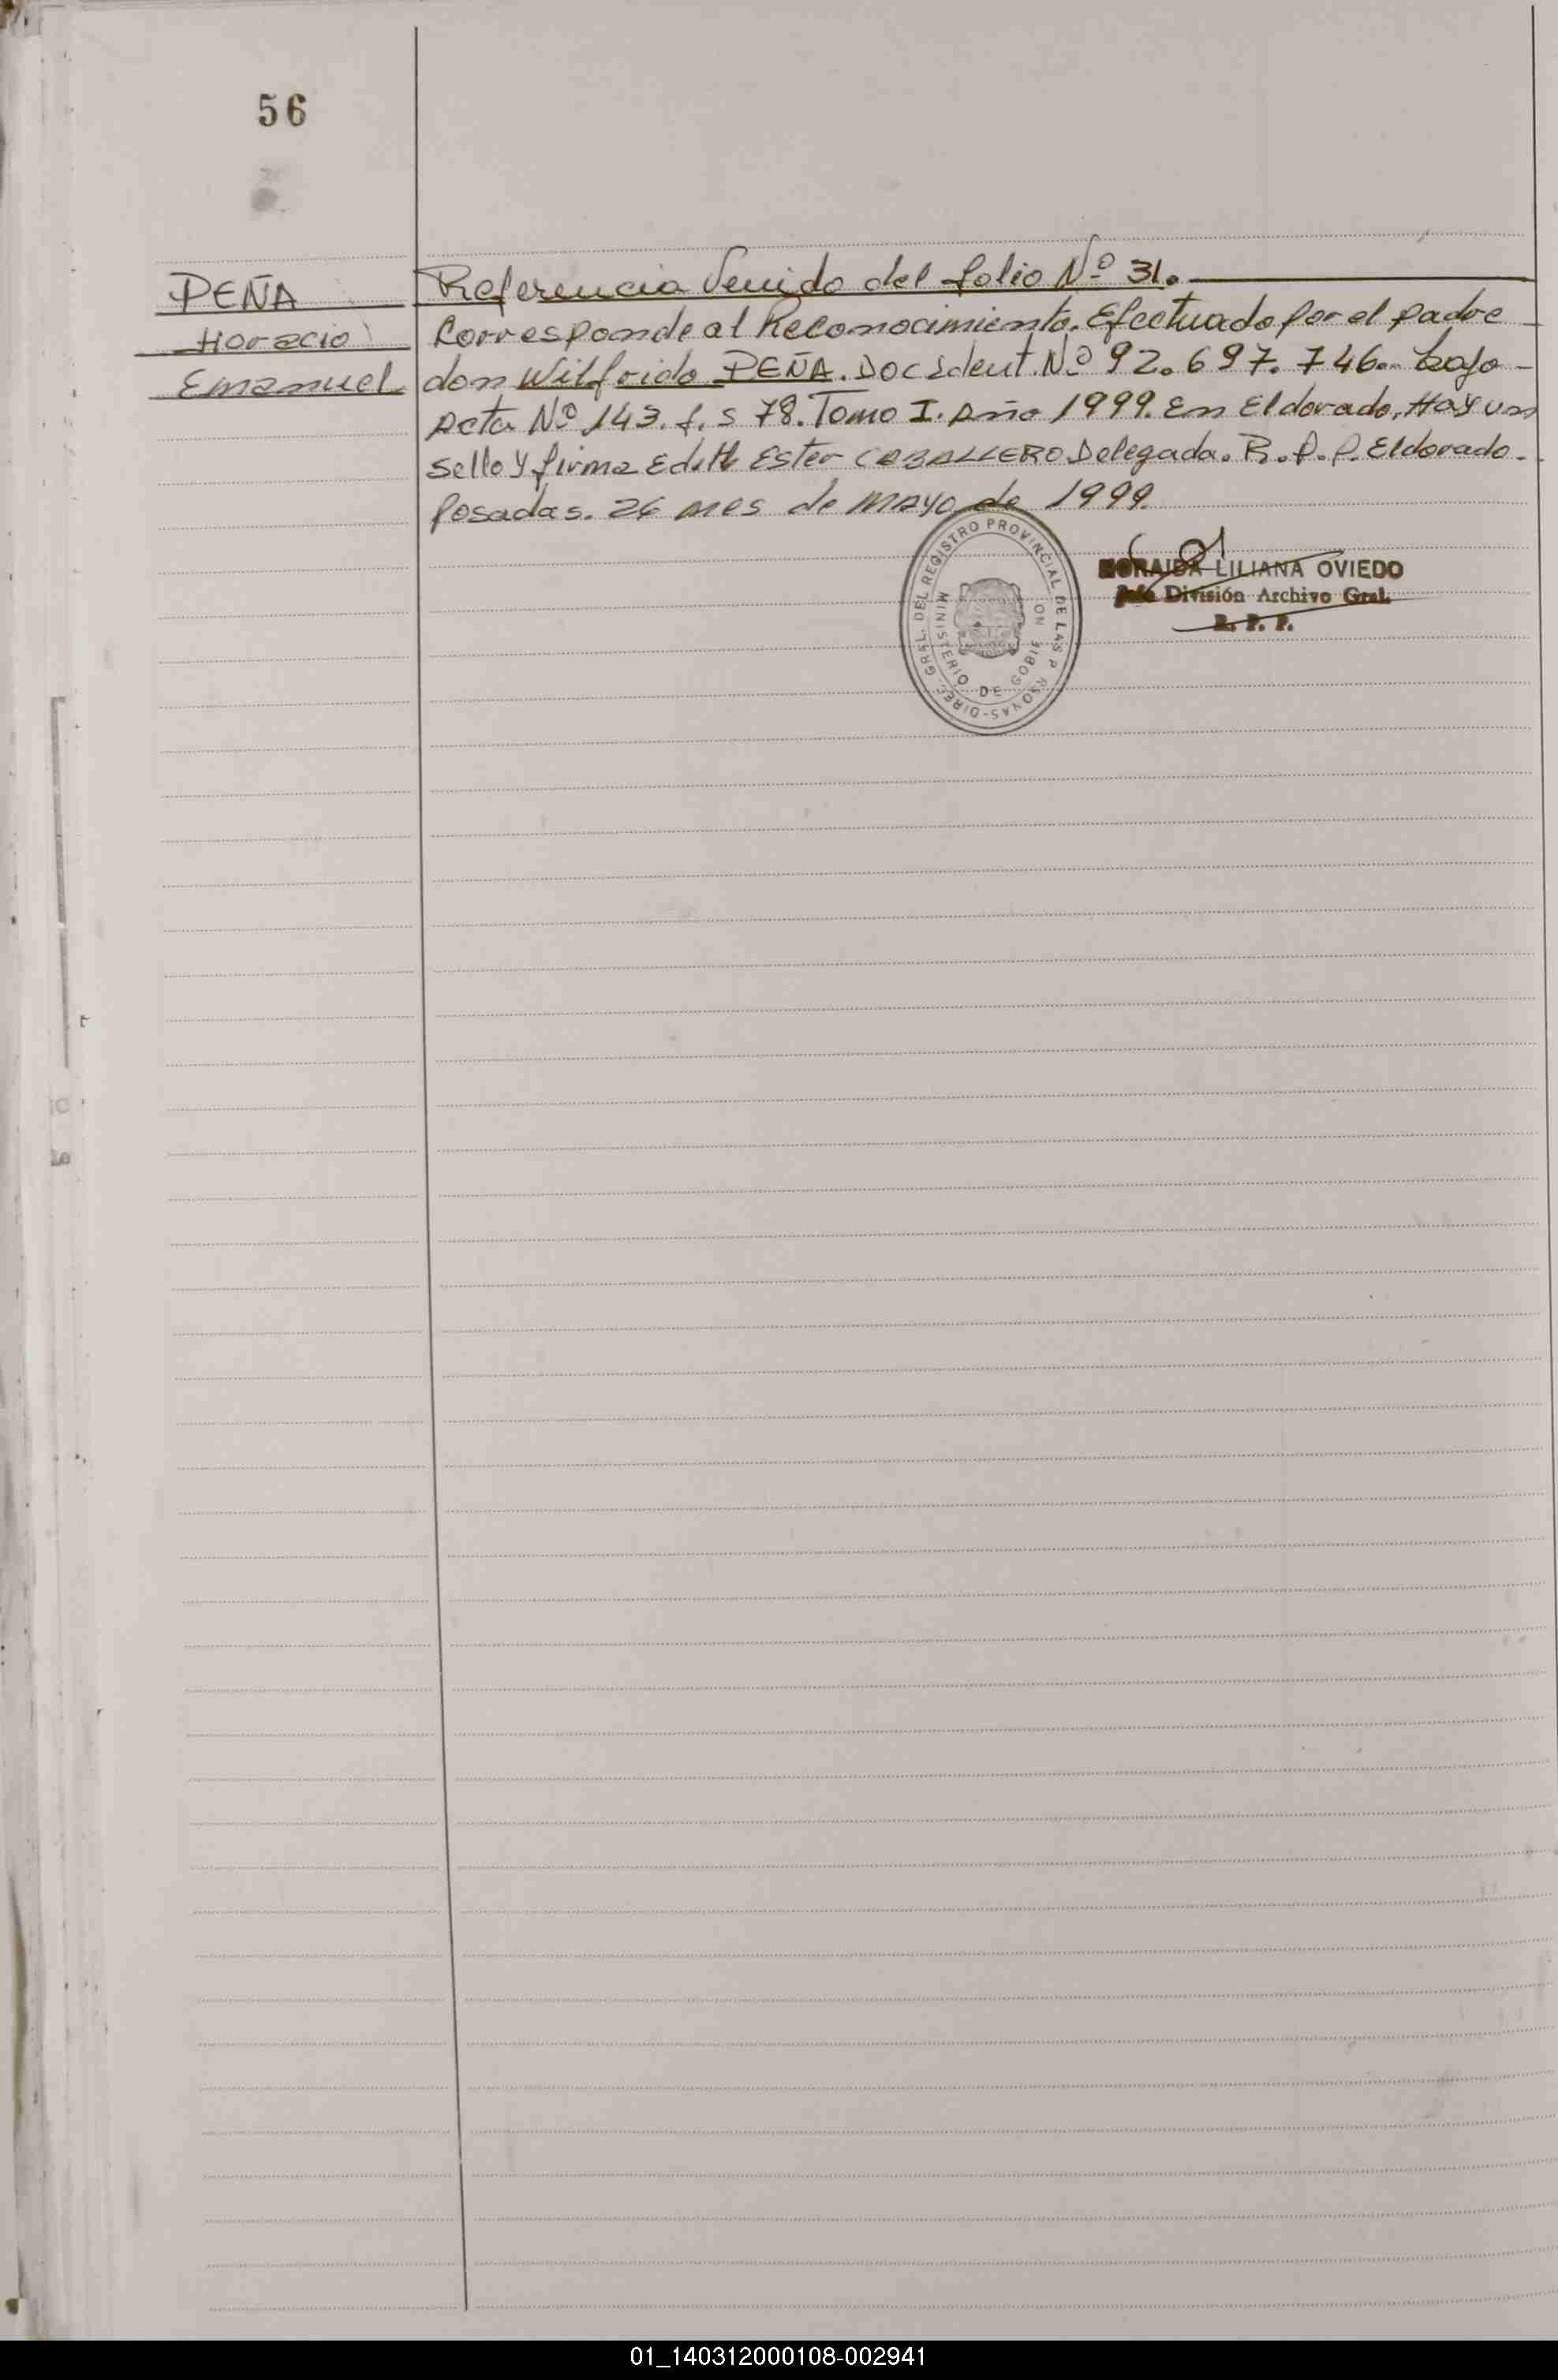 56
PEÑA
Horacio
Emanuel
Referencia Venido del folio Nº 31.
Corresponde al Reconocimiento. Efectuado por el padre
don Wilfrido PEÑA. Doc Ident. Nº 92.697.746.. bajo
Acta Nº 143. f. s 78. Tomo I. Año 1999. En Eldorado, Hay un
sello y firma Edith Ester CABALLERO Delegada. R.P.P. Eldorado.
Posadas. 26 mes de MAYO de 1999.
DIREC. GRAL. DEL REGISTRO PROVINCIAL DE LAS P RSONAS-
MINISTERIO DE GOBIE NO
LILIANA OVIEDO
Jefe División Archivo Gral.
R. P. P.
01_140312000108-002941